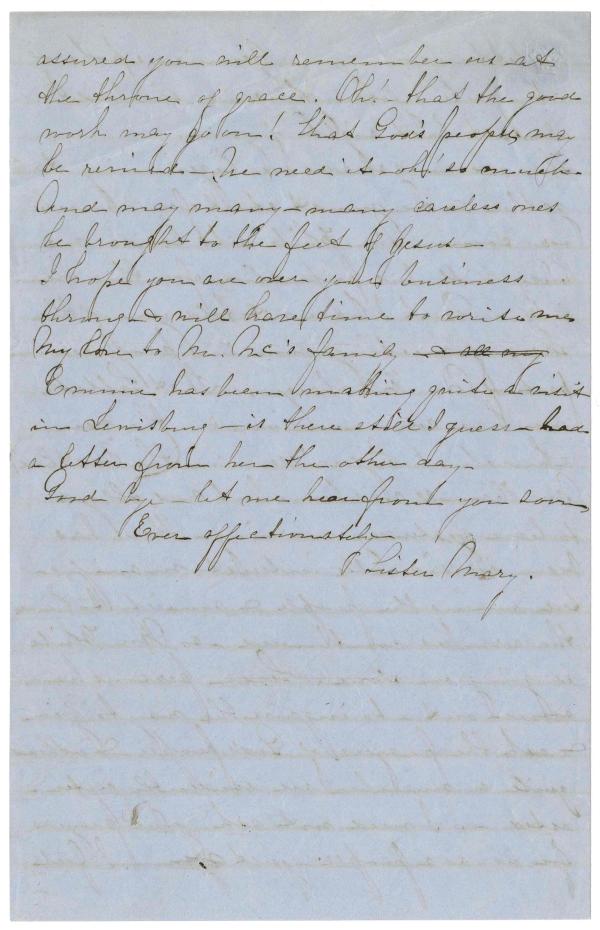 assured you will remember us at
the throne of grace. Oh! - that the good
work may go on! that God's people may
be revived - We need it - oh! so much -
And may many - many careless ones
be brought to the feet of Jesus -
I hope you are over your business
throng & will have time to write me
My love to Mr. Mc's family - & all my
Emmie has been making quite a visit
in Lewisburg - is there still I guess - had
a letter from her the other day -
Good bye - let me hear from you soon
Ever affectionately
Sister Mary.